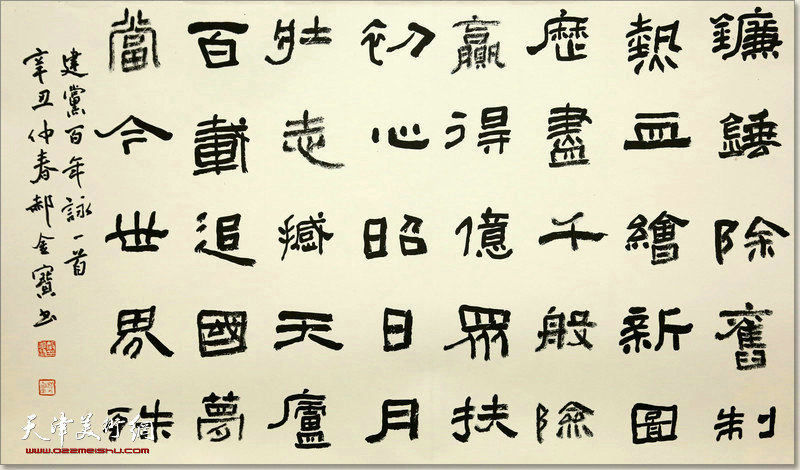 鐮錘除舊制
熱血繪新圖
歷盡千般險
贏得億眾扶
初心昭日月
壯志撼天廬
百載追國夢
當今世界殊
建黨百年詠一首
辛丑仲春郝金寶书
天津美術網
www.022meishu.com